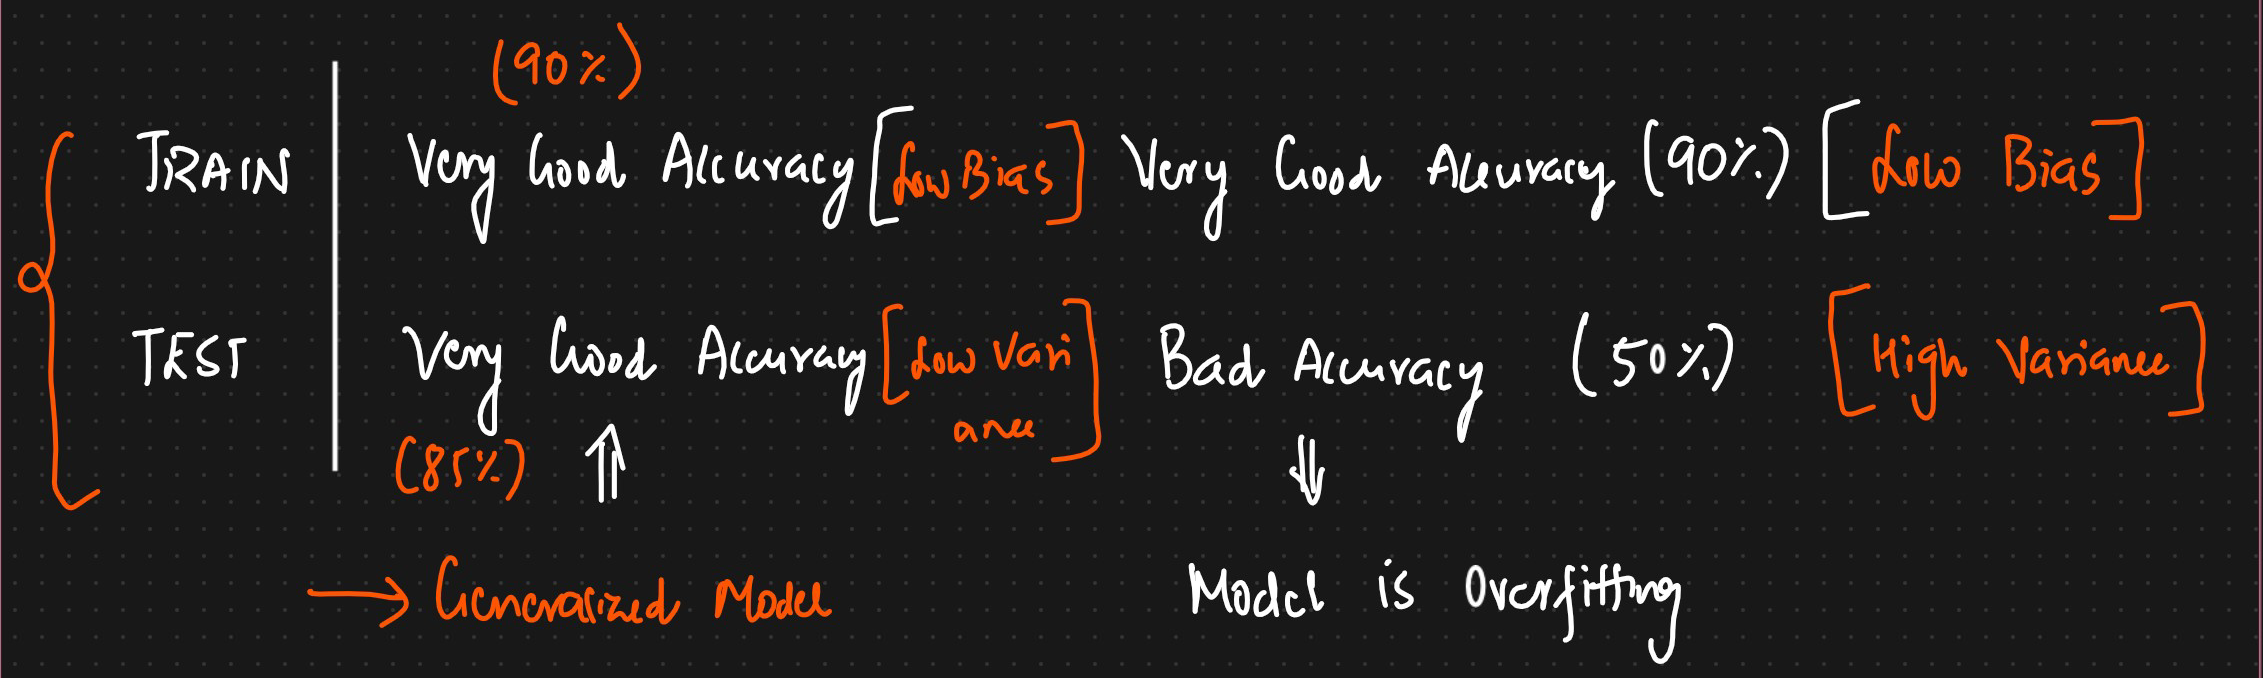 (90%)
TRAIN Very Good Accuracy [Low Bias] Very Good Accuracy (90%) [Low Bias]
TEST Very Good Accuracy [Low Vari Bad Accuracy (50%) [High Variance]
ance]
(85%)
→ Generalized Model Model is Overfitting